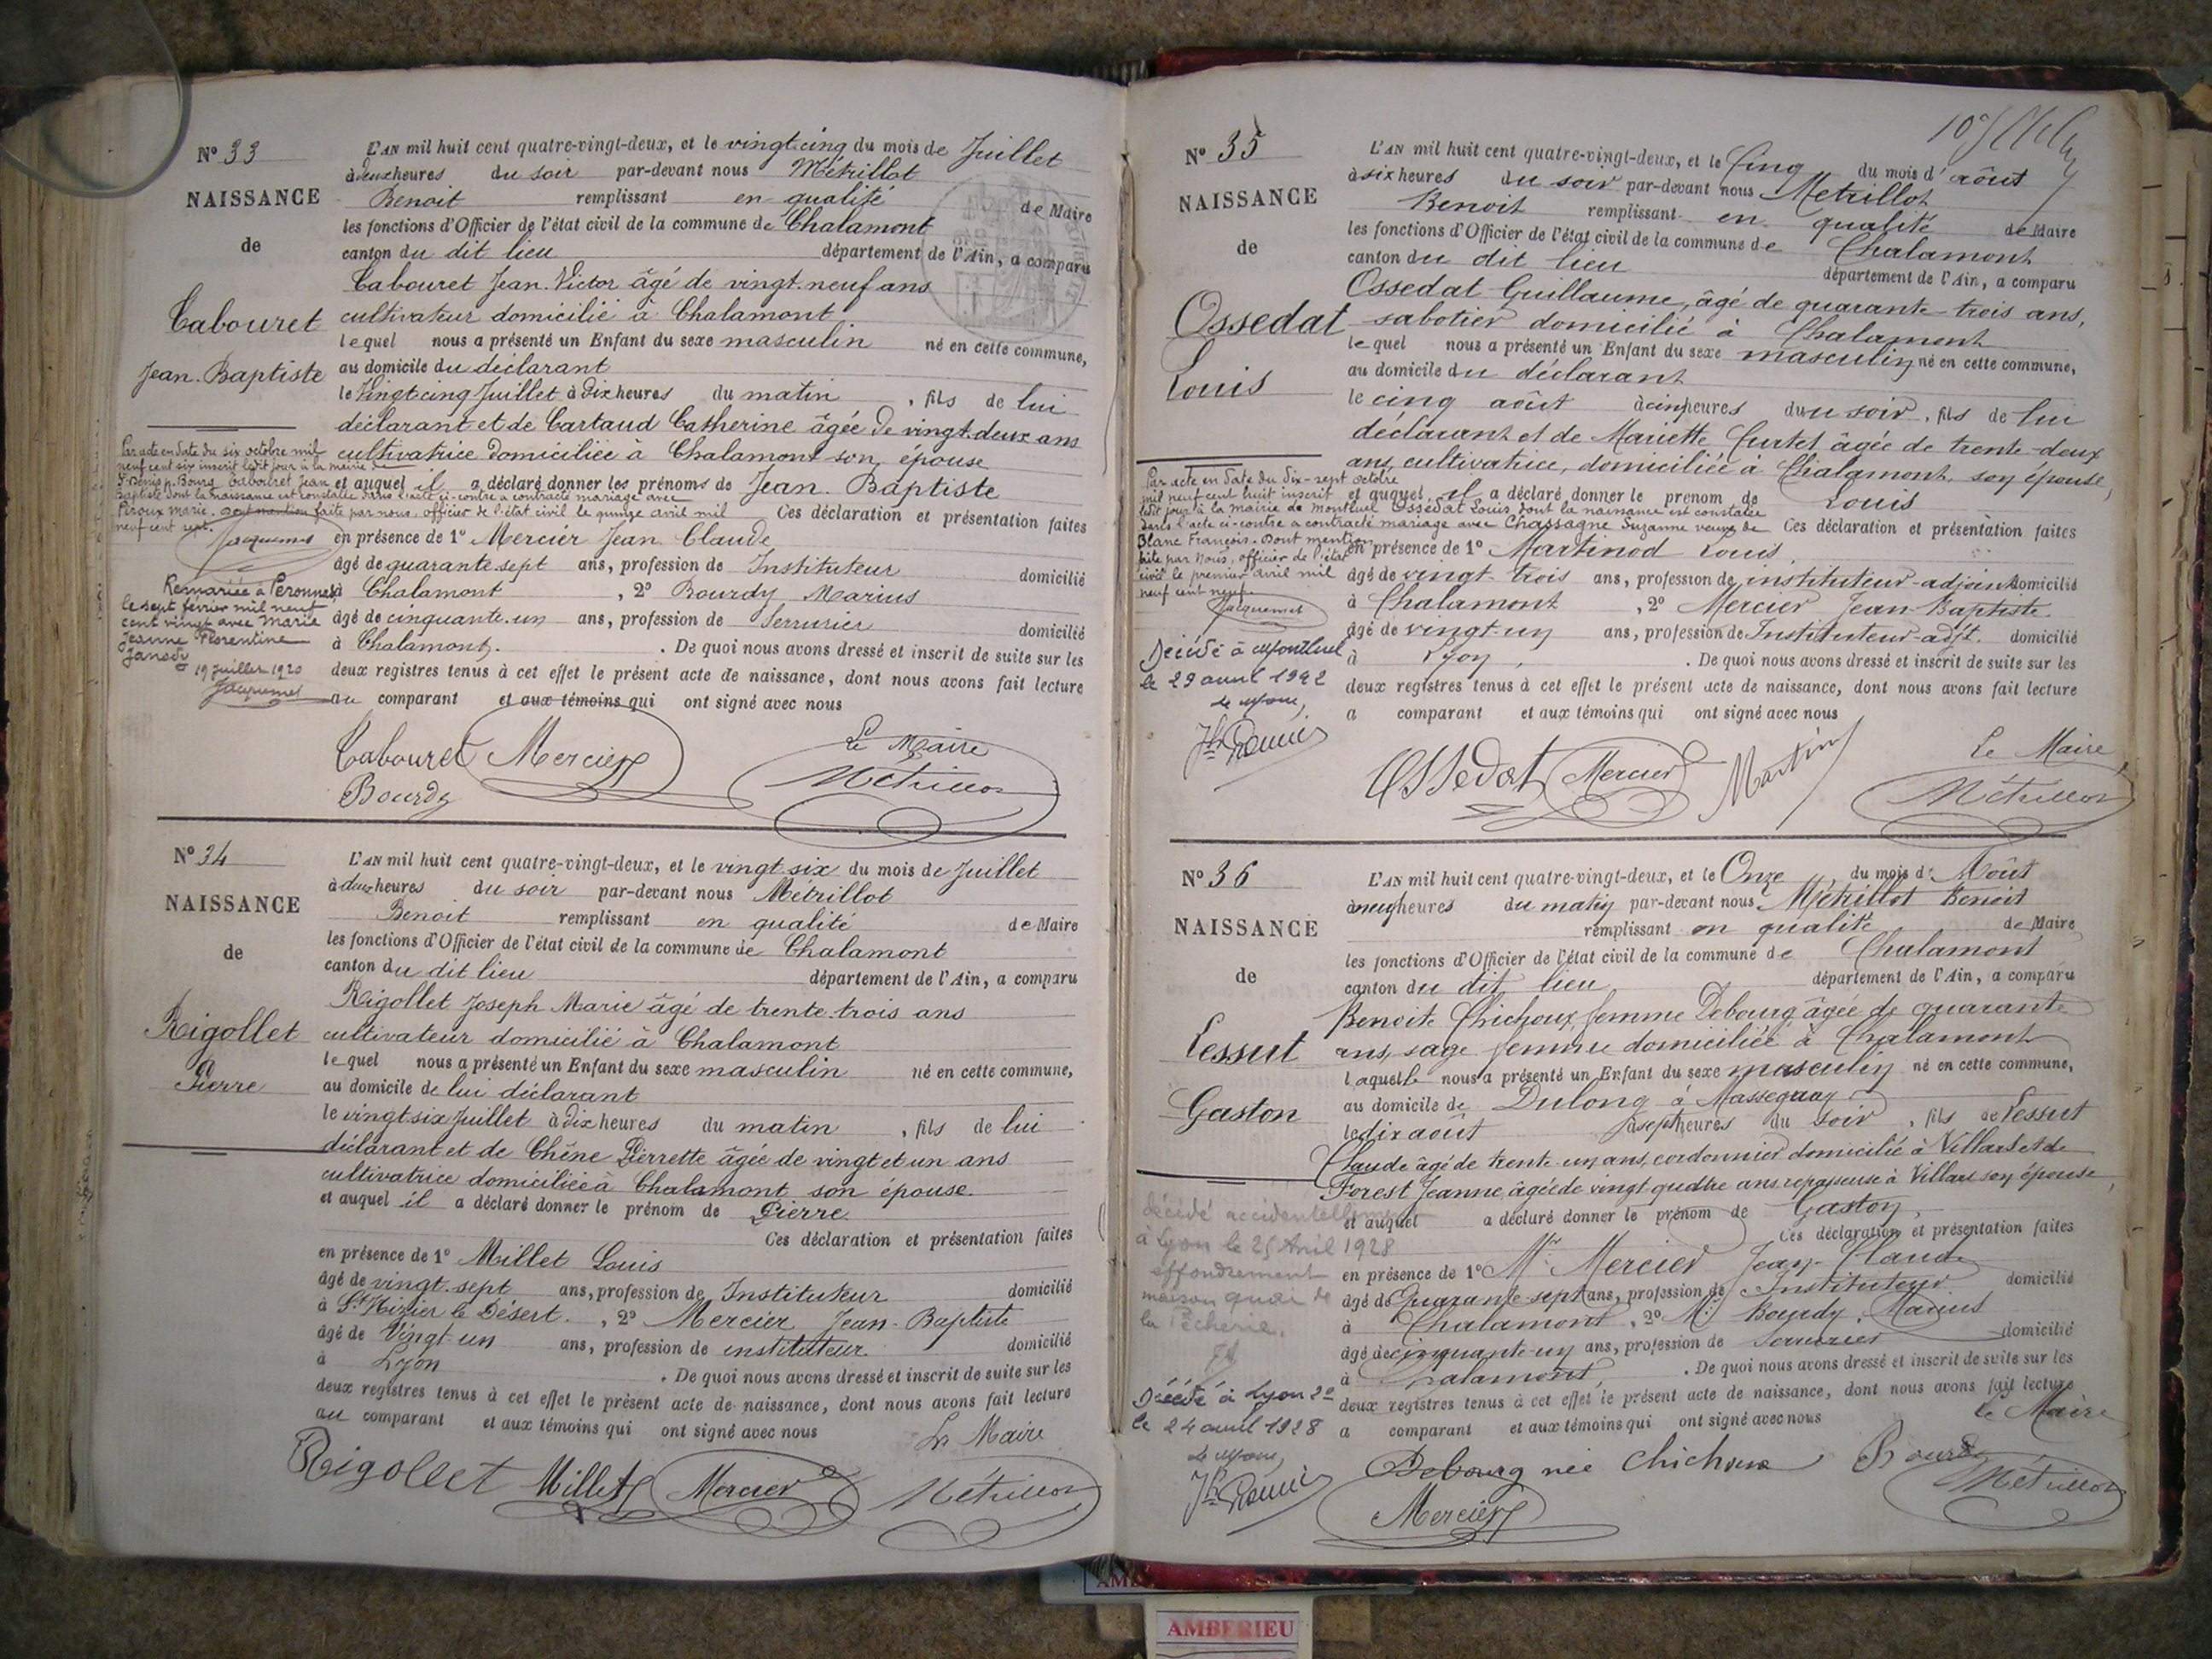 N° 33
NAISSANCE
de
Cabouret
Jean-Baptiste
L'AN mil huit cent quatre-vingt-deux, et le vingt-cinq du mois de Juillet
à deux heures du soir par-devant nous Métrillot
Benoit remplissant en qualité de Maire
les fonctions d'Officier de l'état civil de la commune de Chalamont
canton du dit lieu département de l'Ain, a comparu
Cabouret Jean-Victor âgé de vingt-neuf ans
cultivateur domicilié à Chalamont
lequel nous a présenté un Enfant du sexe masculin né en cette commune,
au domicile du déclarant
le vingt cinq Juillet à Dix heures du matin, fils de lui
déclarant et de Cartaud Catherine âgée de vingt-deux ans
cultivatrice domiciliée à Chalamont son épouse
et auquel il a déclaré donner les prénoms de Jean-Baptiste
Ces déclaration et présentation faites
en présence de 1° Mercier Jean Claude
âgé de quarante-sept ans, profession de Instituteur domicilié
à Chalamont, 2° Bourdy Marius
âgé de cinquante-un ans, profession de Serrurier domicilié
à Chalamont. De quoi nous avons dressé et inscrit de suite sur les
deux registres tenus à cet effet le présent acte de naissance, dont nous avons fait lecture
au comparant et aux témoins qui ont signé avec nous
Par acte en date du six octobre mil
neuf cent six inscrit ledit jour à la mairie de
St Denis p. Bourg Cabouret Jean
Baptiste dont la naissance est constatée dans l'acte ci-contre a contracté mariage avec
Piroux Marie. dont mention faite par nous, officier de l'état civil le quinze avril mil
neuf cent sept.
Jacquemet
Remariée à Peronnas
le sept février mil neuf
cent vingt avec Marie
Jeanne Florentine
19 Juillet 1920
Jacquemet
Cabouret Mercier Le Maire
Bourdy Métrillot
N° 34
NAISSANCE
de
Rigollet
Pierre
L'AN mil huit cent quatre-vingt-deux, et le vingt six du mois de Juillet
à deux heures du soir par-devant nous Métrillot
Benoit remplissant en qualité de Maire
les fonctions d'Officier de l'état civil de la commune de Chalamont
canton du dit lieu département de l'Ain, a comparu
Rigollet Joseph Marie âgé de trente-trois ans
cultivateur domicilié à Chalamont
lequel nous a présenté un Enfant du sexe masculin né en cette commune,
au domicile de lui déclarant
le vingt six Juillet à dix heures du matin, fils de lui
déclarant et de Chêne Pierrette âgée de vingt et un ans
cultivatrice domiciliée à Chalamont son épouse
et auquel il a déclaré donner le prénom de Pierre.
Ces déclaration et présentation faites
en présence de 1° Millet Louis
âgé de vingt-sept ans, profession de Instituteur domicilié
à St Nizier le Désert, 2° Mercier Jean-Baptiste
âgé de Vingt-un ans, profession de instituteur domicilié
à Lyon. De quoi nous avons dressé et inscrit de suite sur les
deux registres tenus à cet effet le présent acte de naissance, dont nous avons fait lecture
au comparant et aux témoins qui ont signé avec nous
Le Maire
Rigollet Millet Mercier Métrillot
N° 35
NAISSANCE
de
Ossedat
Louis
L'AN mil huit cent quatre-vingt-deux, et le cinq du mois d'août
à six heures du soir par-devant nous Métrillot
Benoit remplissant en qualité de Maire
les fonctions d'Officier de l'état civil de la commune de Chalamont
canton du dit lieu département de l'Ain, a comparu
Ossedat Guillaume, âgé de quarante-trois ans,
sabotier domicilié à Chalamont
lequel nous a présenté un Enfant du sexe masculin né en cette commune,
au domicile du déclarant
le cinq août à cinq heures du soir, fils de lui
déclarant et de Mariette Curtet âgée de trente-deux
ans, cultivatrice, domiciliée à Chalamont, son épouse,
et auquel il a déclaré donner le prénom de Louis
Ces déclaration et présentation faites
en présence de 1° Martinod Louis,
âgé de vingt-trois ans, profession de instituteur-adjoint domicilié
à Chalamont, 2° Mercier Jean-Baptiste
âgé de vingt-un ans, profession de Instituteur-adjt. domicilié
à Lyon. De quoi nous avons dressé et inscrit de suite sur les
deux registres tenus à cet effet le présent acte de naissance, dont nous avons fait lecture
a comparant et aux témoins qui ont signé avec nous
Par acte en date du dix-sept octobre
mil neuf cent huit inscrit
ledit jour à la mairie de Montluel Ossedat Louis dont la naissance est constatée
dans l'acte ci-contre a contracté mariage avec Chassagne Suzanne veuve de
Blanc François. Dont mention
faite par Nous, officier de l'état
civil le premier avril mil
neuf cent neuf.
Jacquemet
Décédé à Montluel
le 29 avril 1942
Le Maire,
Ossedat Mercier Le Maire
Métrillot
N° 36
NAISSANCE
de
Lessut
Gaston
L'AN mil huit cent quatre-vingt-deux, et le Onze du mois d'Août
à neuf heures du matin par-devant nous Métrillot Benoit
remplissant en qualité de Maire
les fonctions d'Officier de l'état civil de la commune de Chalamont
canton du dit lieu département de l'Ain, a comparu
Benoite Chichoux, femme Debourg âgée de quarante
ans, sage femme domiciliée à Chalamont
laquelle nous a présenté un Enfant du sexe masculin né en cette commune,
au domicile de Dulong à
le dix août à sept heures du soir, fils de Lessut
Claude âgé de trente-un ans, cordonnier domicilié à Villars et de
Forest Jeanne, âgée de vingt quatre ans repasseuse à Villars son épouse,
et auquel a déclaré donner le prénom de Gaston,
Ces déclaration et présentation faites
en présence de 1° Mr Mercier Jean-Claude
âgé de Quarante-sept ans, profession de Instituteur domicilié
à Chalamont, 2° Mr Bourdy Marius
âgé de cinquante-un ans, profession de serrurier domicilié
à Chalamont. De quoi nous avons dressé et inscrit de suite sur les
deux registres tenus à cet effet le présent acte de naissance, dont nous avons fait lecture
a comparant et aux témoins qui ont signé avec nous
le Maire
décédé accidentellement
à Lyon le 25 Avril 1928
effondrement
maison quai de
la Pêcherie.
Décédé à Lyon 2e
le 24 avril 1928
Le Maire,
Debourg née Chichoux Bourdy
Métrillot
Mercier
AMBERIEU